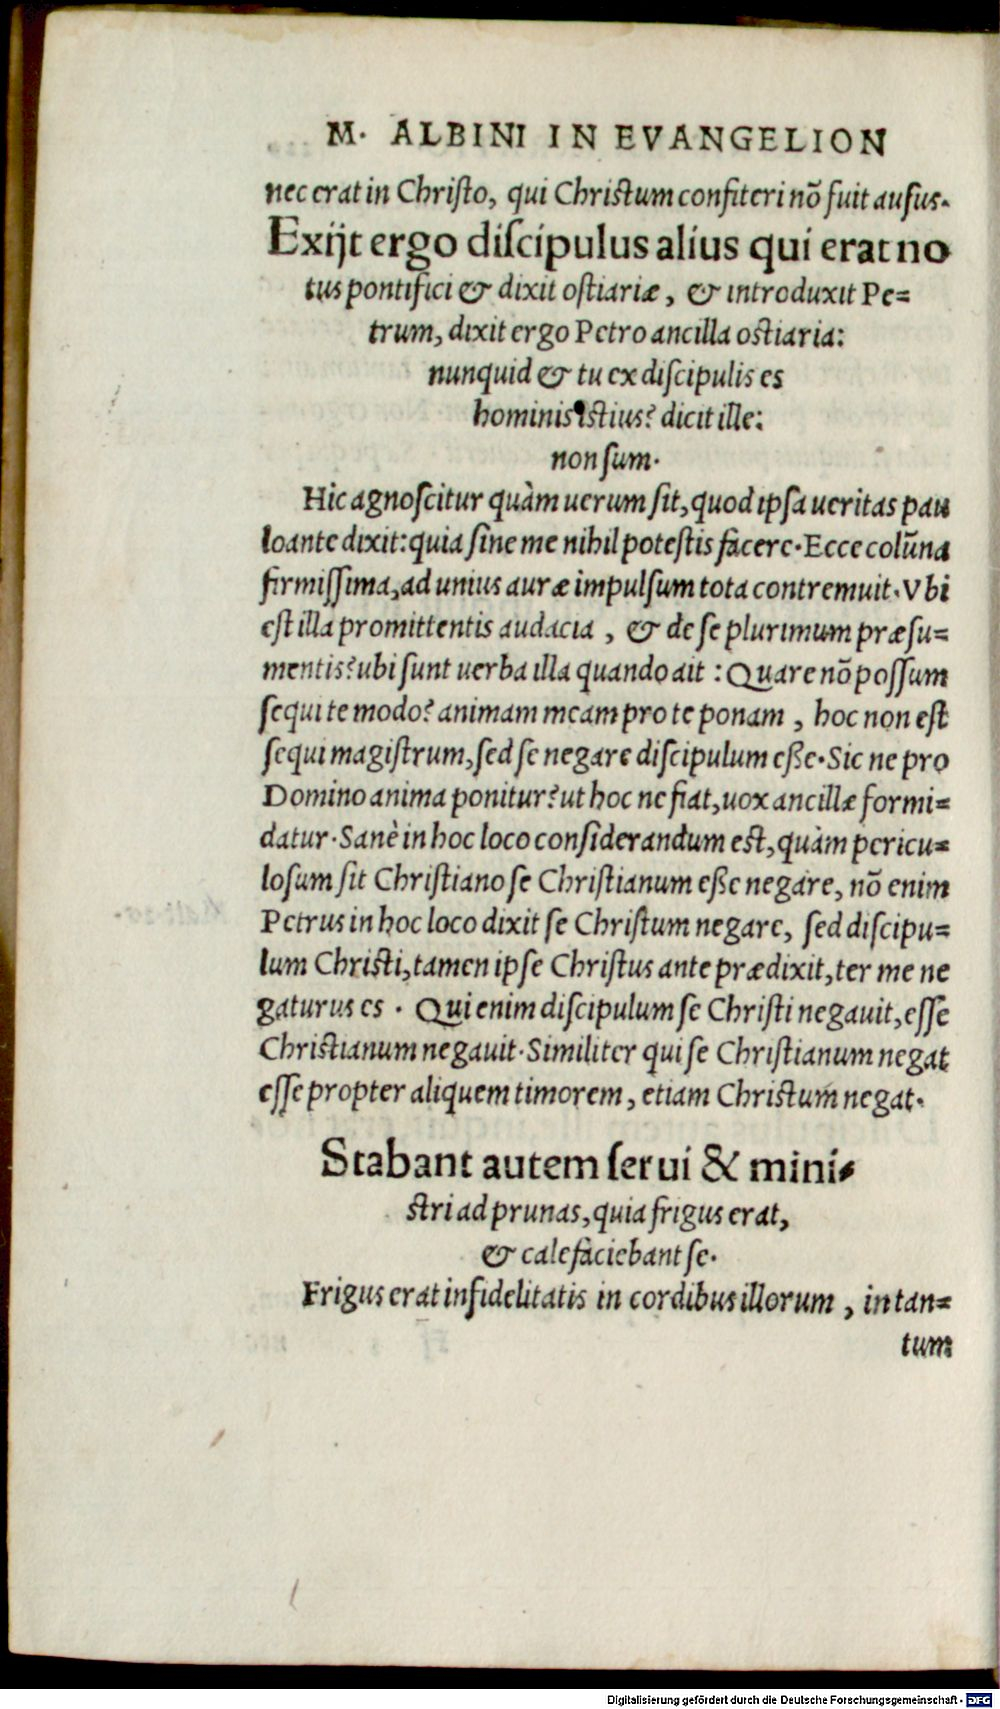 M. ALBINI IN EVANGELION
nec erat in Chriſto, qui Chriſtum confiteri nõ fuit auſus.
Exijt ergo diſcipulus alius qui erat no
tus pontifici & dixit oſtiariæ, & introduxit Pe=
trum, dixit ergo Petro ancilla oſtiaria:
nunquid & tu ex diſcipulis es
hominis iſtius? dicit ille:
non ſum.
Hic agnoſcitur quàm uerum ſit, quod ipſa ueritas pau
lo ante dixit: quia ſine me nihil poteſtis facere. Ecce colũna
firmiſſima, ad unius auræ impulſum tota contremuit. Vbi
eſt illa promittentis audacia, & de ſe plurimum præſu=
mentis? ubi ſunt uerba illa quando ait: Quare nõ poſſum
ſequi te modo? animam meam pro te ponam, hoc non eſt
ſequi magiſtrum, ſed ſe negare diſcipulum eße. Sic ne pro
Domino anima ponitur? ut hoc ne fiat, uox ancillæ formi=
datur. Sanè in hoc loco conſiderandum eſt, quàm pericu=
loſum ſit Chriſtiano ſe Chriſtianum eße negare, nõ enim
Petrus in hoc loco dixit ſe Chriſtum negare, ſed diſcipu=
lum Chriſti, tamen ipſe Chriſtus ante prædixit, ter me ne
gaturus es. Qui enim diſcipulum ſe Chriſti negauit, eſſe
Chriſtianum negauit. Similiter qui ſe Chriſtianum negat
eſſe propter aliquem timorem, etiam Chriſtum negat.
Stabant autem ſerui & mini=
ſtri ad prunas, quia frigus erat,
& calefaciebant ſe.
Frigus erat infidelitatis in cordibus illorum, in tan=
tum
Digitalisierung gefördert durch die Deutsche Forschungsgemeinschaft - DFG